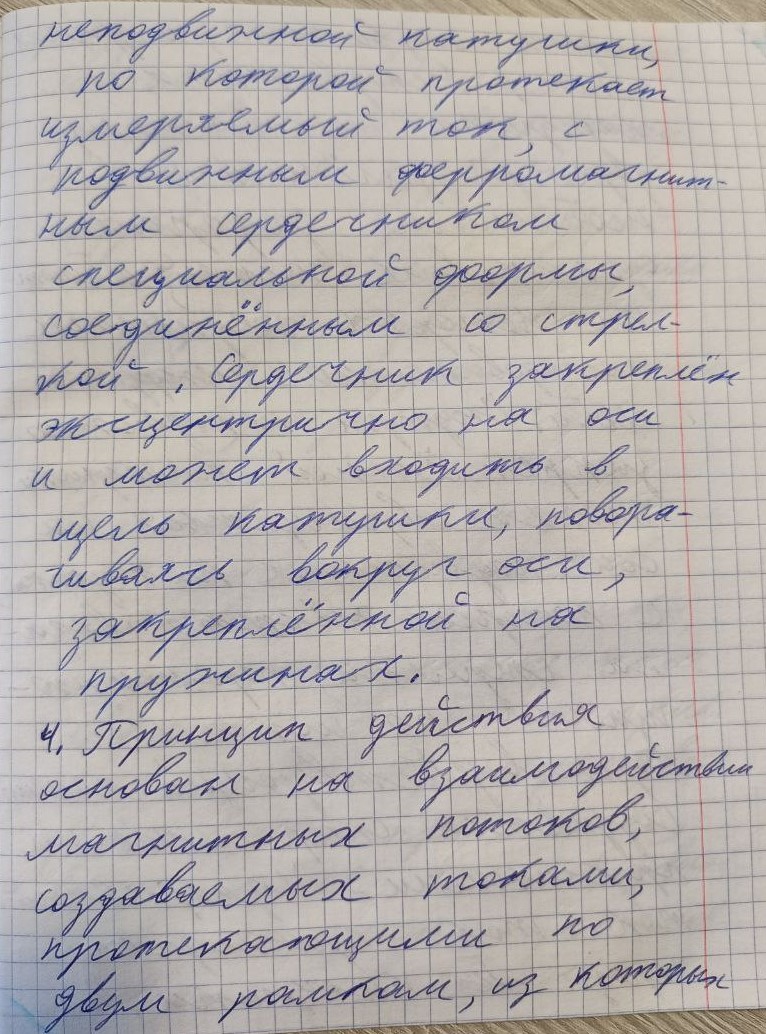 неподвижной катушки,
по которой протекает
измеряемый ток, с
подвижным ферромагнит-
ным сердечником
специальной формы,
соединённым со стрел-
кой. Сердечник закреплён
эксцентрично на оси
и может входить в
щель катушки, повора-
чиваясь вокруг оси,
закреплённой на
пружинах.
4. Принцип действия
основан на взаимодействии
магнитных потоков,
создаваемых токами,
протекающими по
двум рамкам, из которых